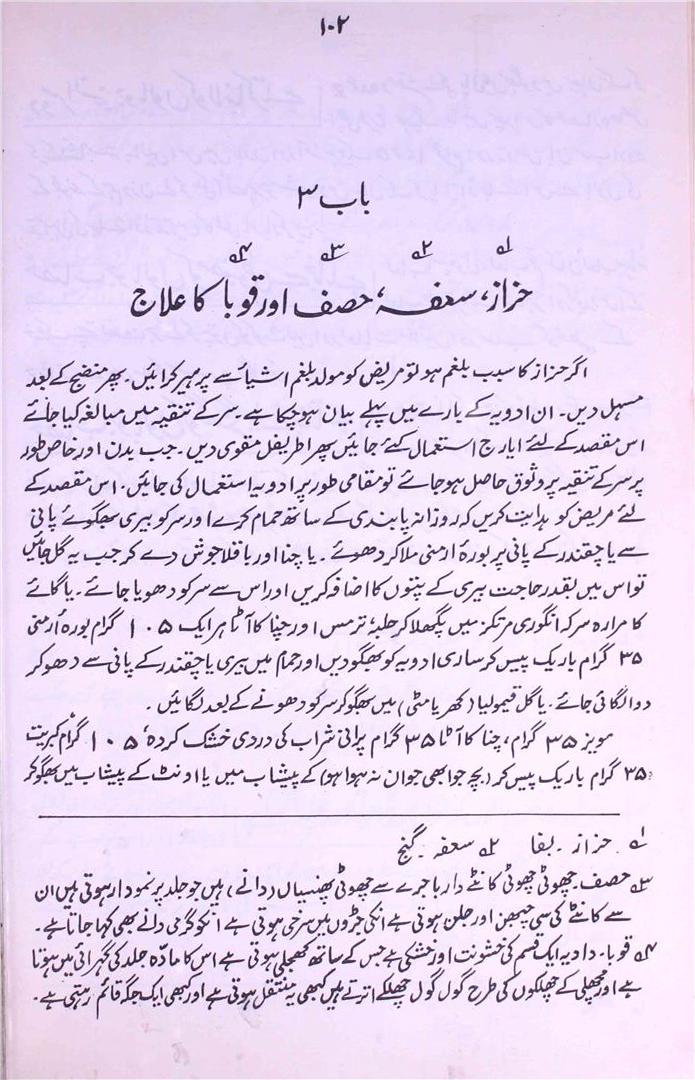 ۱۰۲
باب ۳
۱؎ ۲؎ ۳؎ ۴؎
حزاز، سعفہ، حصف اور قوبا کا علاج
اگر حزاز کا سبب بلغم ہو تو مریض کو مولد بلغم اشیاء سے پرہیز کرائیں۔ پھر منضج کے بعد
مسہل دیں۔ ان ادویہ کے بارے میں پہلے بیان ہو چکا ہے۔ سر کے تنقیہ میں مبالغہ کیا جائے
اس مقصد کے لئے ایارج استعمال کئے جائیں پھر اطریفل مقوی دیں۔ جب بدن اور خاص طور
پر سر کے تنقیہ پر وثوق حاصل ہو جائے تو مقامی طور پر ادویہ استعمال کی جائیں۔ اس مقصد کے
لئے مریض کو ہدایت کریں کہ روزانہ پابندی کے ساتھ حمام کرے اور سر کو بیری بھگوئے پانی
سے یا چقندر کے پانی پر بورۂ ارمنی ملا کر دھوئے۔ یا چنا اور باقلا جوش دے کر جب یہ گل جائیں
تو اس میں بقدر حاجت بیری کے پتوں کا اضافہ کریں اور اس سے سر کو دھویا جائے۔ یا گائے
کا مرارہ سرکہ انگوری مرتکز میں پگھلا کر حلبہ، ترمس اور چنا کا آٹا ہر ایک ۱۰۵ گرام بورہ ارمنی
۳۵ گرام باریک پیس کر ساری ادویہ کو بھگو دیں اور حمام میں بیری یا چقندر کے پانی سے دھو کر
دوا لگائی جائے۔ یا گل قیمولیا (کھریا مٹی) میں بھگو کر سر کو دھونے کے بعد لگائیں۔
مویز ۳۵ گرام، چنا کا آٹا ۳۵ گرام پرانی شراب کی دردی خشک کردہ، ۱۰۵ گرام کبریت
۳۵ گرام باریک پیس کر (بچہ جو ابھی جوان نہ ہوا ہو) کے پیشاب میں یا اونٹ کے پیشاب میں بھگو کر
۱؎ حزاز۔ بفا ۲؎ سعفہ۔ گنج
۳؎ حصف۔ چھوٹی چھوٹی کانٹے دار باجرے سے چھوٹی پھنسیاں (دانے) ہیں جو جلد پر نمودار ہوتی ہیں ان
سے کانٹے کی سی چبھن اور جلن ہوتی ہے انکی جڑوں میں سرخی ہوتی ہے انکو گرمی دانے بھی کہا جاتا ہے۔
۴؎ قوبا۔ داد یہ ایک قسم کی خشونت اور خشکی ہے جس کے ساتھ کھجلی ہوتی ہے اس کا مادّہ جلد کی گہرائیں میں ہوتا
ہے اور مچھلی کے چھلکوں کی طرح گول گول چھلکے اترتے ہیں کبھی یہ منتقل ہوتی ہے اور کبھی ایک جگہ قائم رہتی ہے۔